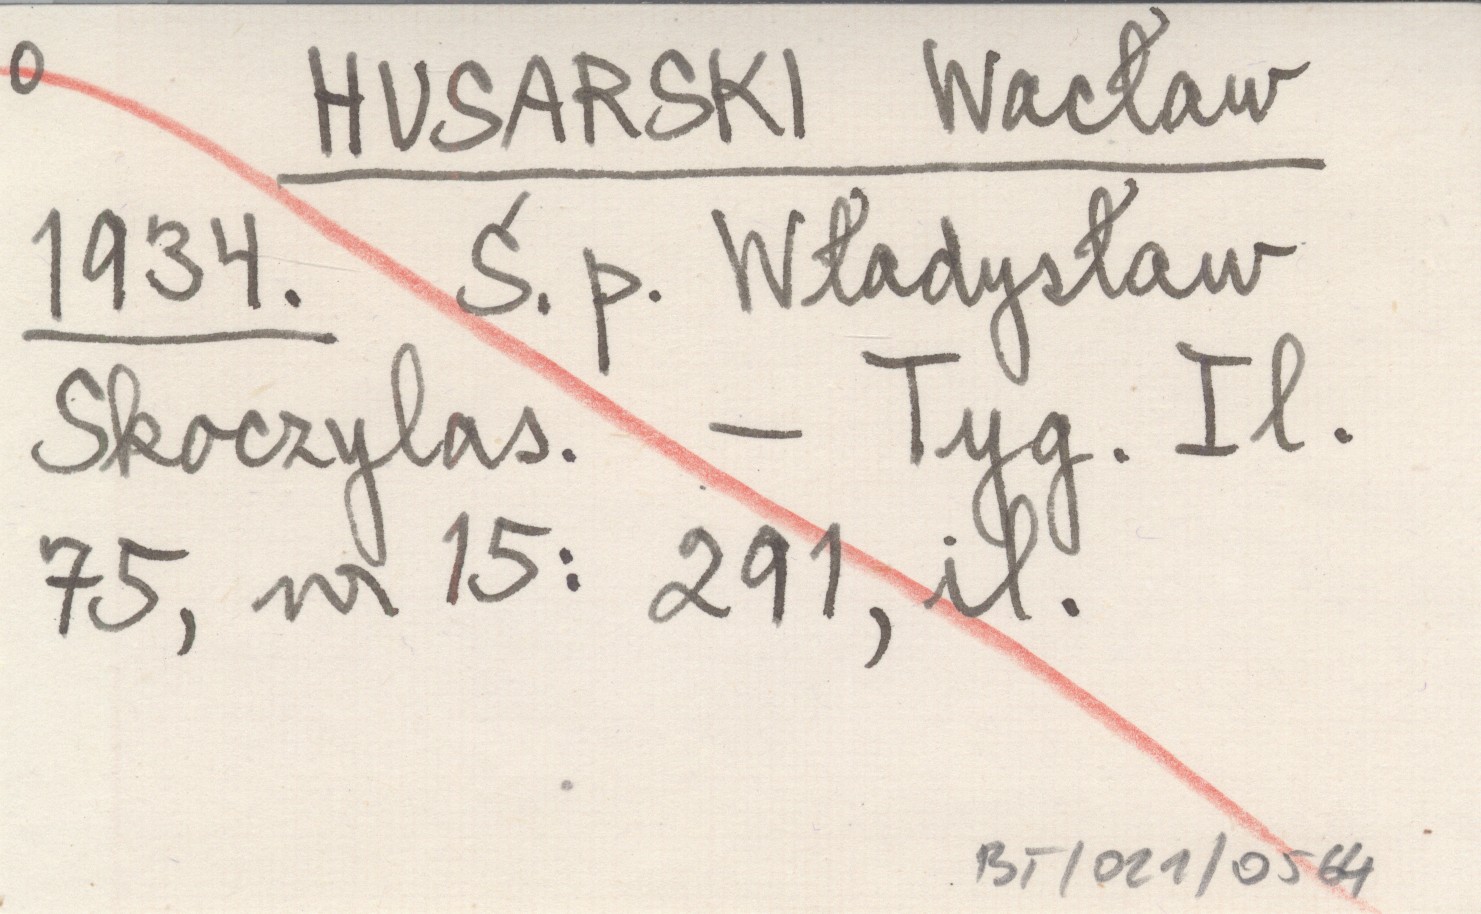 0
HUSARSKI Wacław
1934. Ś. p. Władysław
Skoczylas. — Tyg. Il.
75, nr 15: 291, il.
BT/021/0564